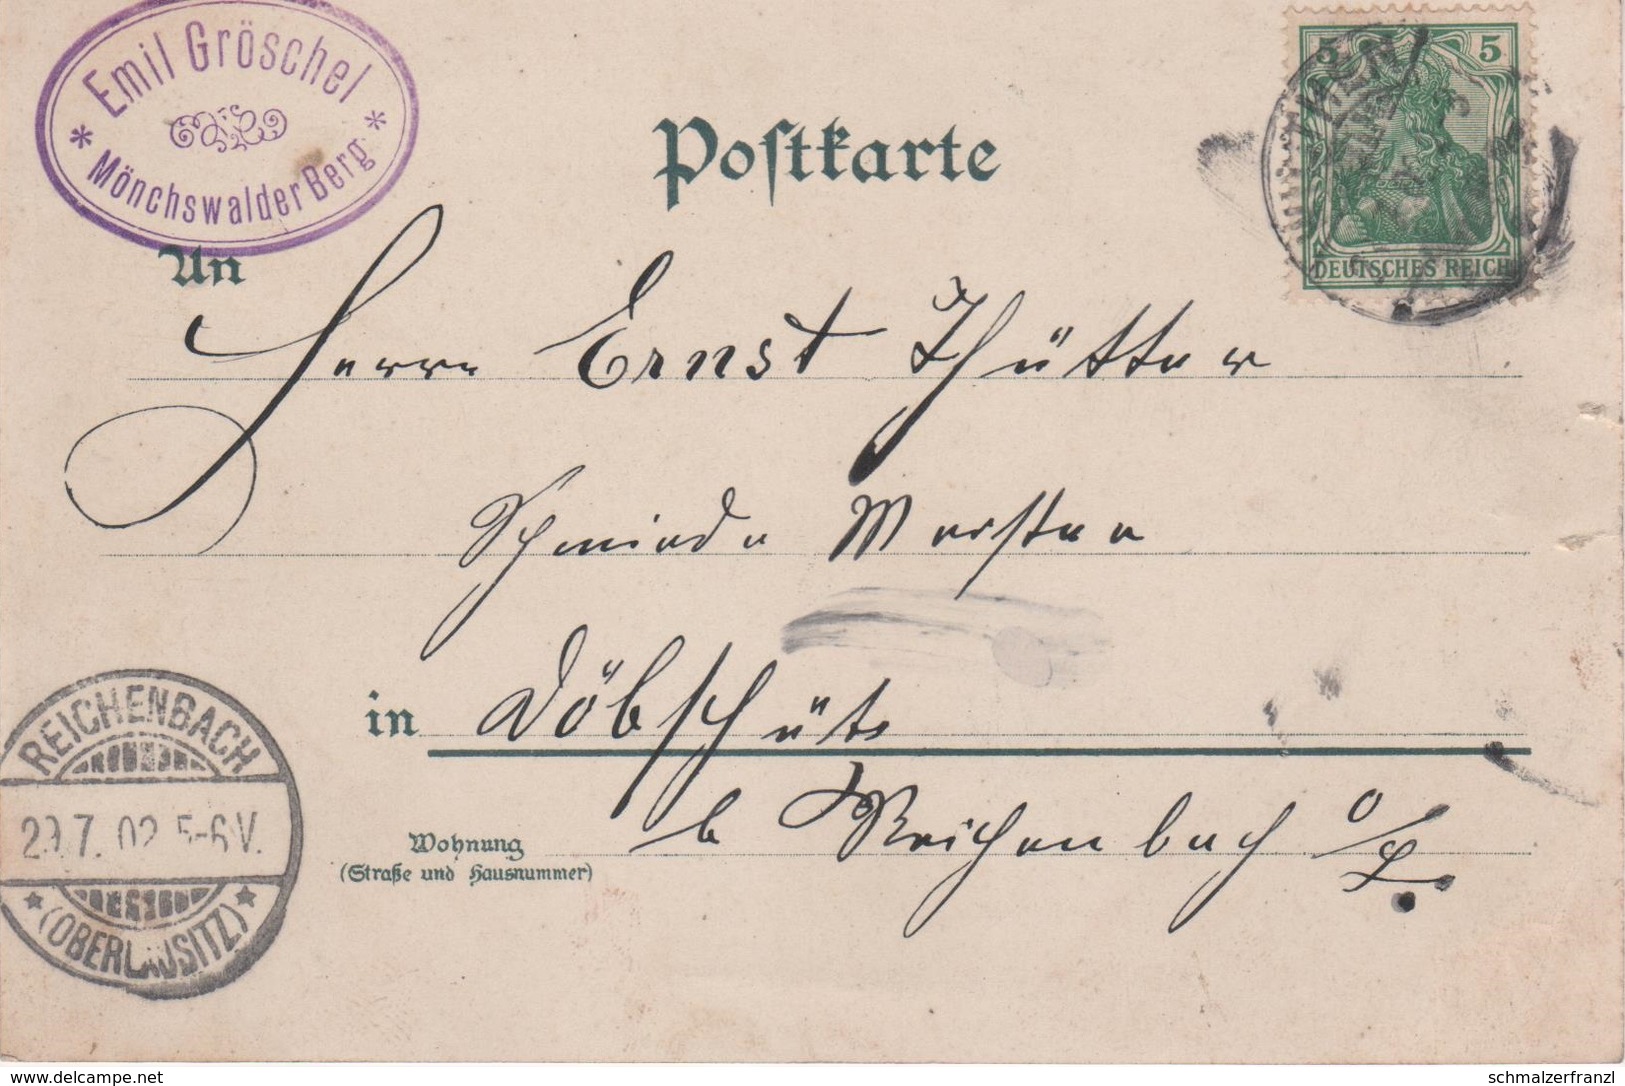 Emil Gröschel
* Mönchswalder Berg *
Postkarte
5 5
DEUTSCHES REICH
An
Herrn Ernst Thütter
Schmiede
in Döbschütz
b Reichenbach o/L.
Wohnung
(Straße und Hausnummer)
REICHENBACH
29.7.02 5-6V.
* (OBERLAUSITZ) *
delcampe.net
schmalzerfranzl